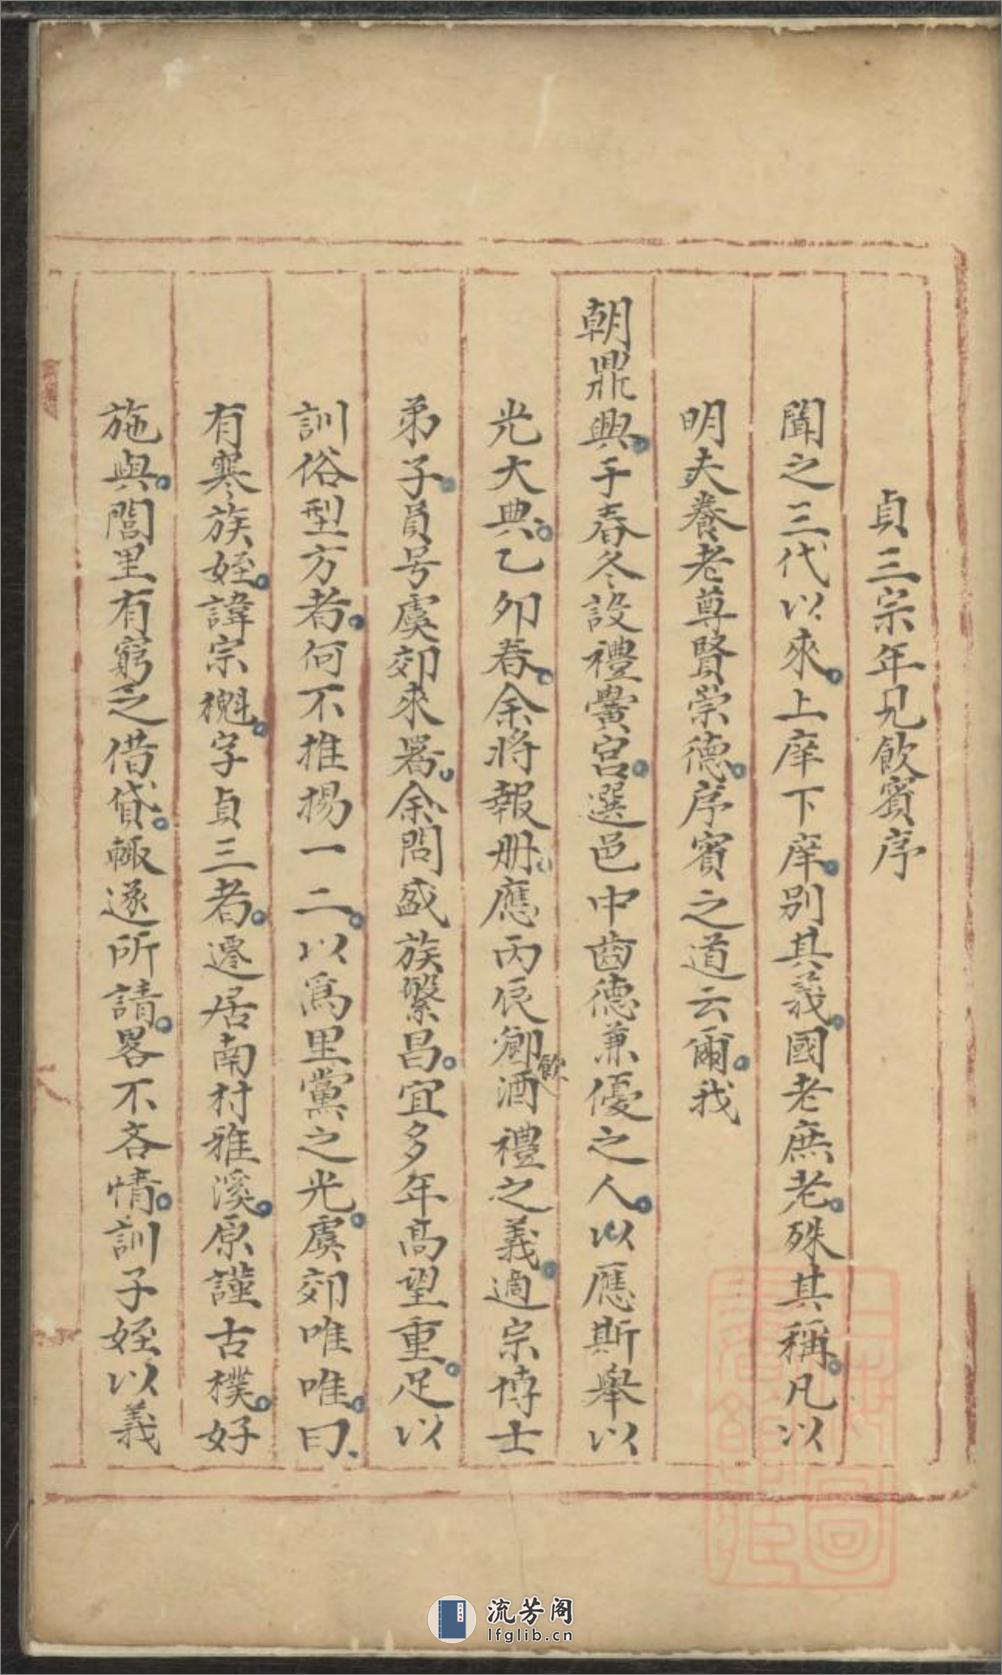 貞三宗年兄飲賓序
聞之三代以來上庠下庠别其義國老庶老殊其稱凡以
明夫養老尊賢崇德序賓之道云爾我
朝鼎興于春冬設禮黌宫選邑中齒德兼優之人以應斯舉以
光大典乙夘春余將報册應丙辰鄉飲酒禮之義適宗博士
弟子員号虞郊來署余問盛族繁昌宜多年高望重足以
訓俗型方者何不推揚一二以爲里黨之光虞郊唯唯曰
有寒族姪諱宗槐字貞三者遷居南村雅溪原謹古樸好
施與閭里有窮乏借貸輙遂所請畧不吝情訓子姪以義
流芳阁
lfglib.cn